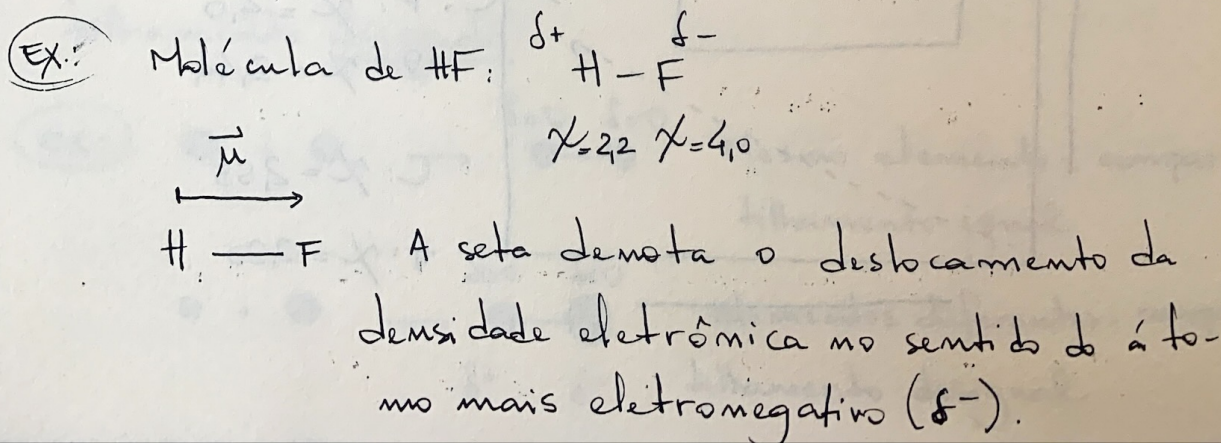 EX.: Molécula de HF: δ+ H – F δ-
χ=2,2 χ=4,0
μ⃗
H — F A seta denota o deslocamento da
densidade eletrônica no sentido do áto-
mo mais eletronegativo (δ-).